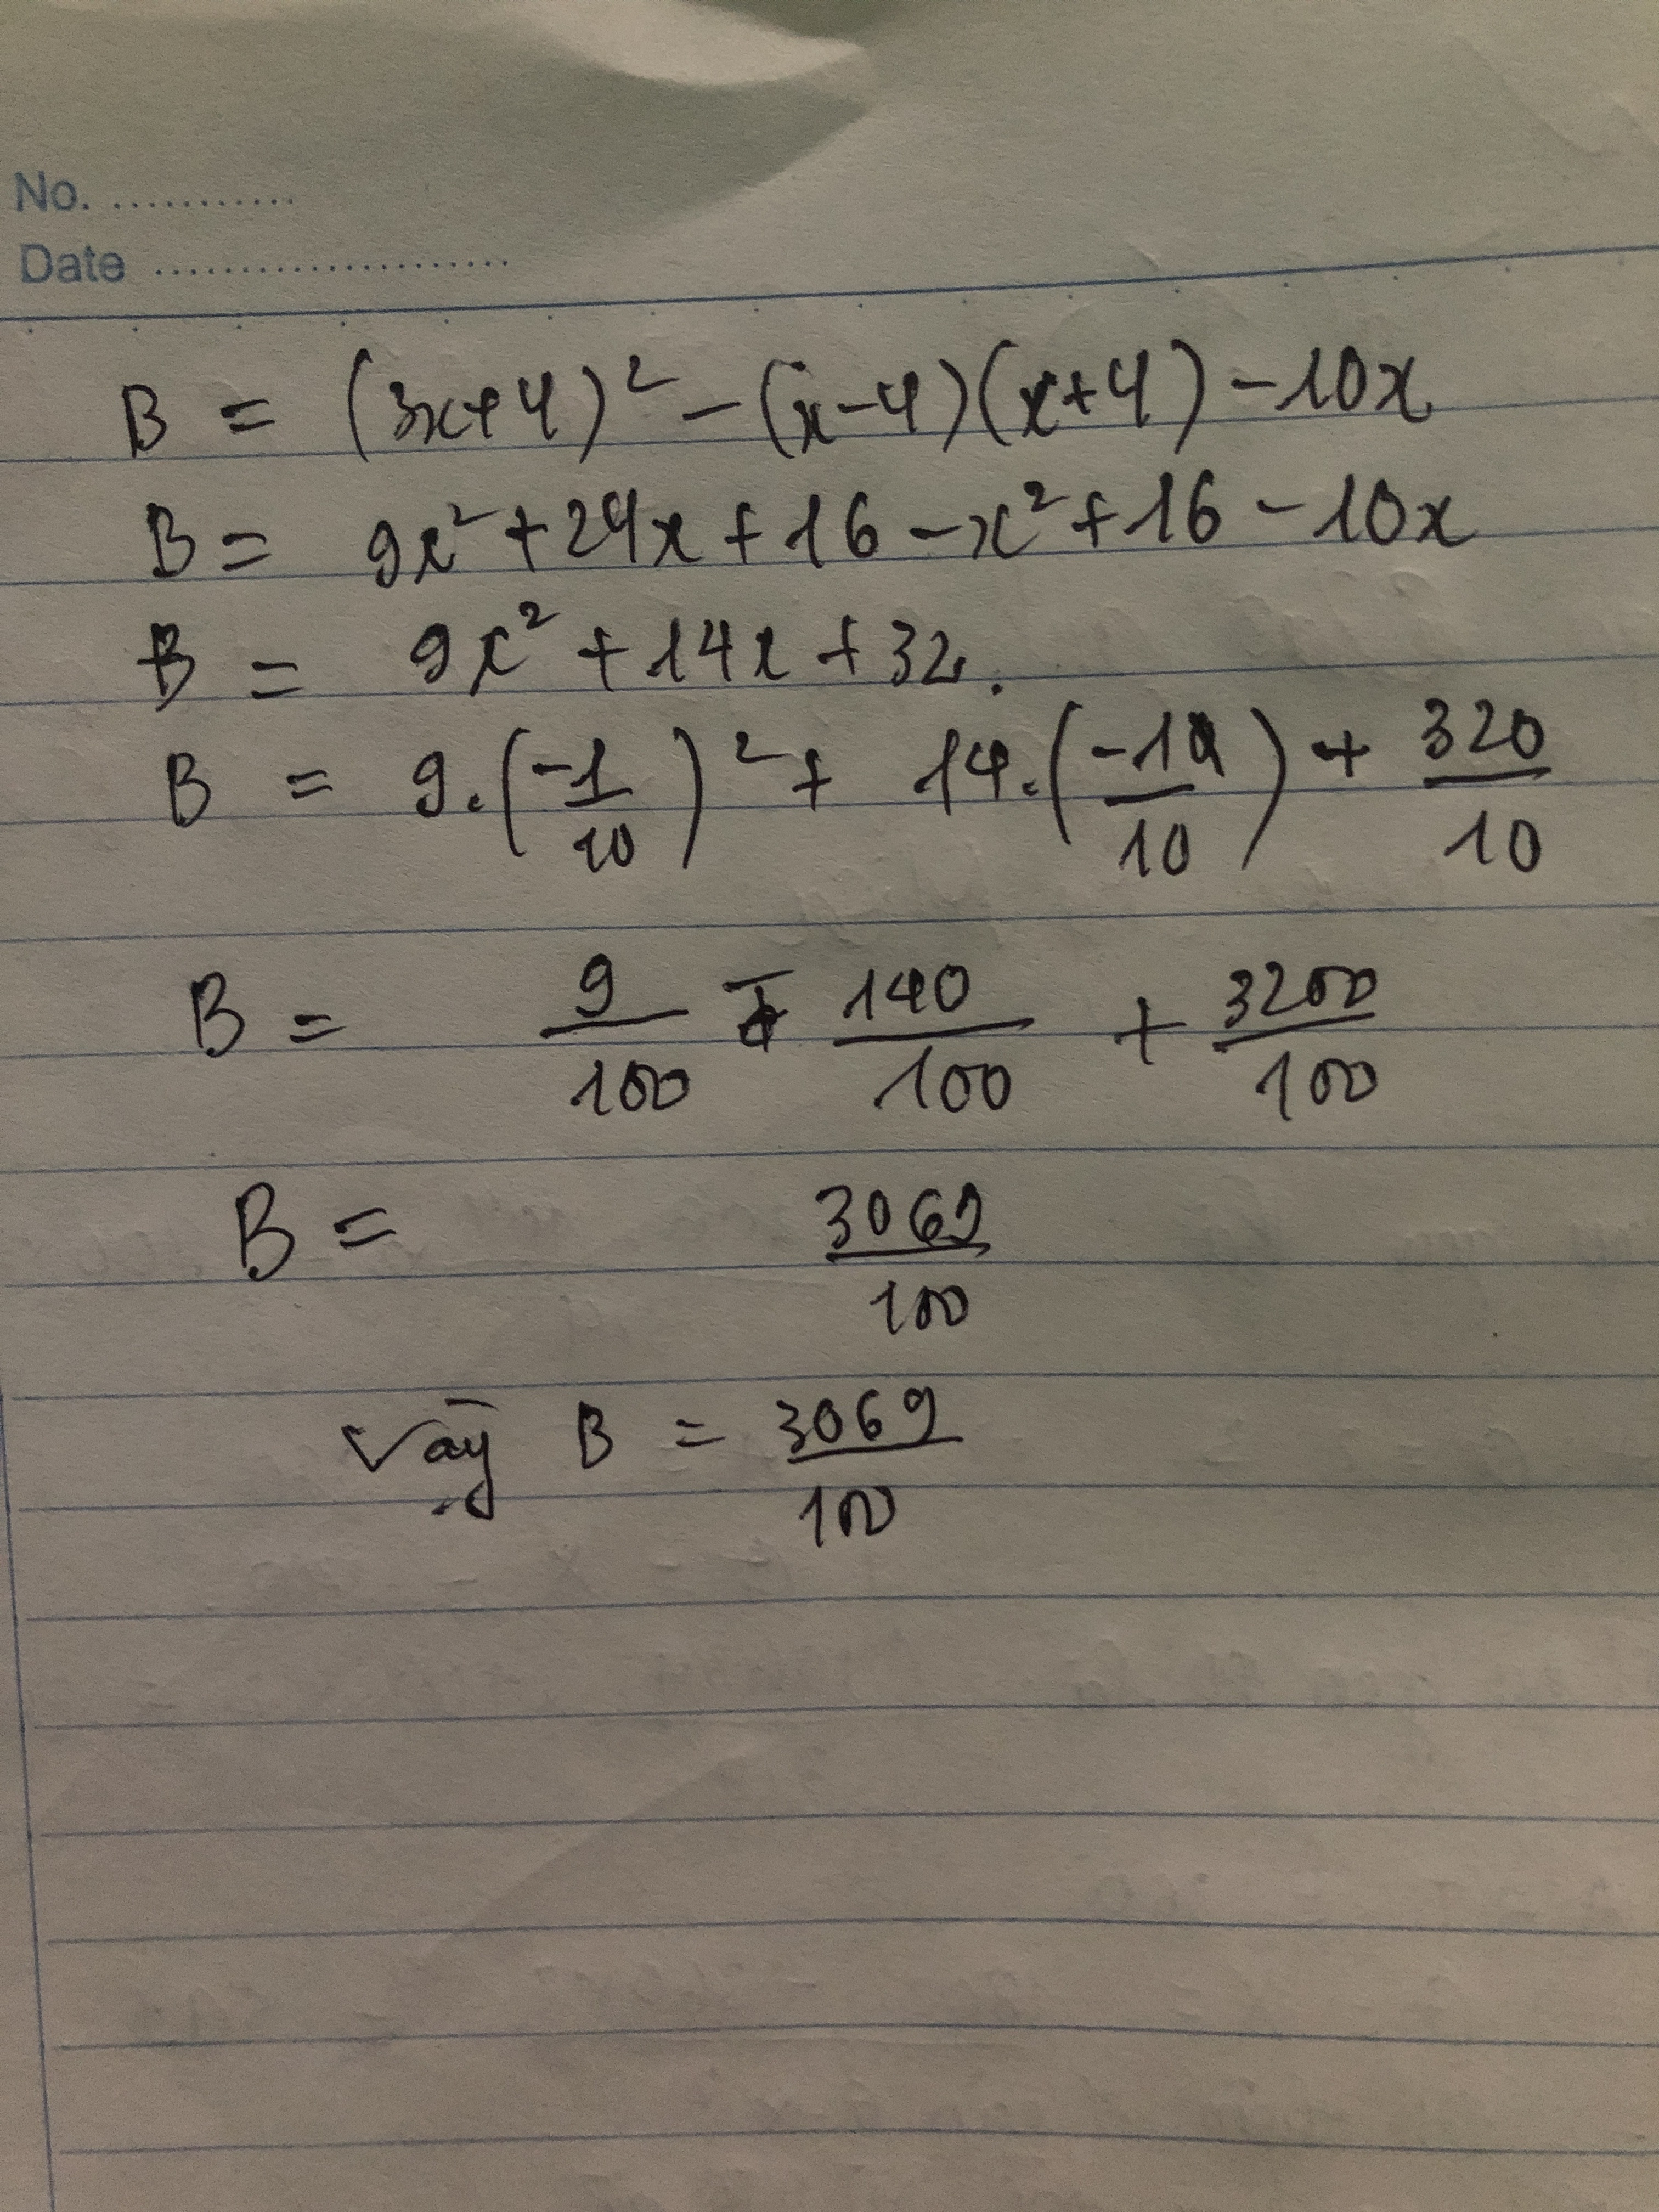 No. ...........
Date .....................
B = (3x+4)² - (x-4)(x+4) - 10x
B = 9x² + 24x + 16 - x² + 16 - 10x
B = 9x² + 14x + 32.
B = 9.(-1/10)² + 14.(-10/10) + 320/10
B = 9/100 - 140/100 + 3200/100
B = 3069/100
Vậy B = 3069/100